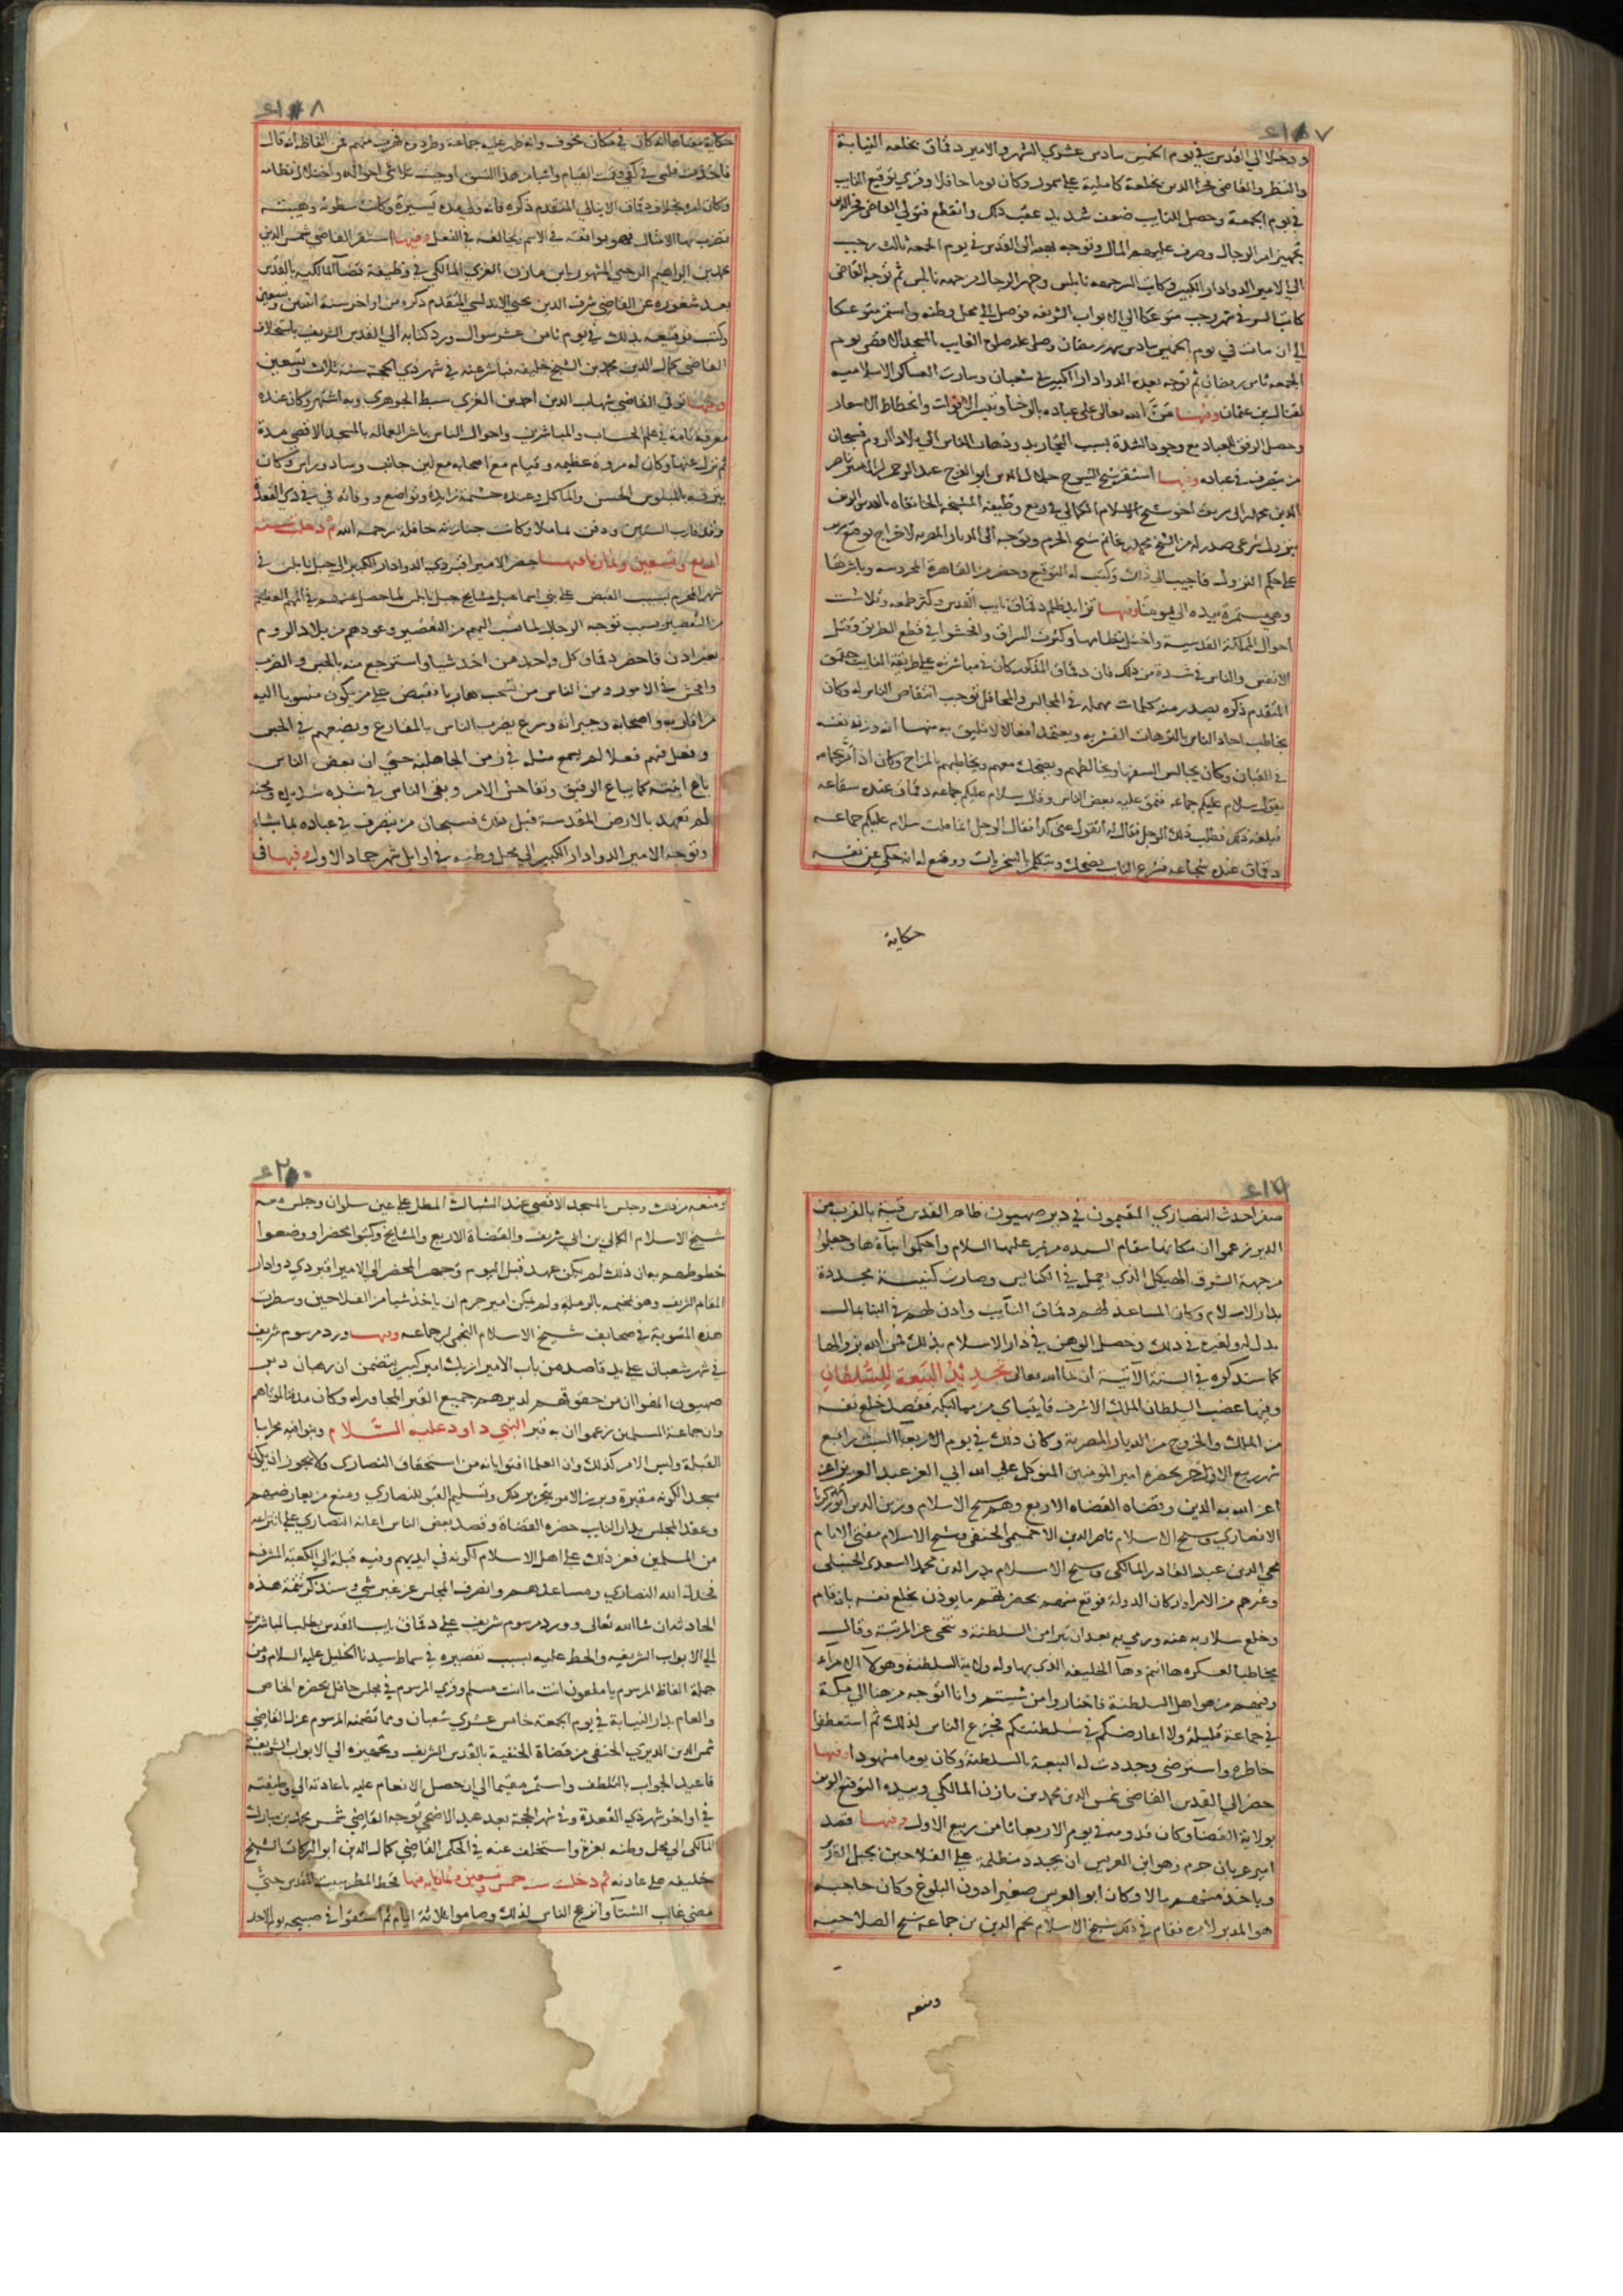 ٤١٧
ودخلا الي القدس في يوم الخميس سادس عشري الشهر والامير دقماق بخلعه النيابة
والنظر والقاضي فخر الدين بخلعة كاملية علي سمور وكان يوما حافلا وقري توقيع النايب
في يوم الجمعة وحصل للنايب ضعف شديد عقب ذلك وانقطع فتولي القاضي فخر الدين
تجهيز امر الرجال وصرف عليهم المال وتوجه بهم الي القدس في يوم الجمعة ثالث رجب
الي الامير الدوادار الكبير وكاتب السر جمعه نابلس وجهز الرجال من جهه نابلس ثم توجه القاضي
كاتب السر في شهر رجب متوعكا الي الابواب الشريفه فوصل الي محل وطنه واستمر متوعكا
الي ان مات في يوم الخميس سادس شهر رمضان وصلي عليه صلاة الغايب بالمسجد الاقصي يوم
الجمعه ثامن رمضان ثم توجه بعده الدوادار الكبير في شعبان وسارت العساكر الاسلاميه
لقتال بن عثمان وفيها من الله تعالي علي عباده بالرخا وتيسر الاقوات وانحطاط الاسعار
وحصل الرفق للعباد مع وجود الشدة بسبب التجاريد وذهاب الناس الي بلاد الروم فسبحان
من يتصرف في عباده وفيها استقر شيخ الشيوخ جلال الدين ابو الفرج عبد الرحمن بن الامير ناصر
الدين محمد بن ابي شريف اخو شيخ الاسلام الكمالي في ربع وظيفة المشيخة الخانقاه بالقدس الشريف
بنزول شرعي صدر له من الشيخ محمد بن غانم شيخ الحرم وتوجه الي الديار المصريه لاخراج توقيع شريف
علي حكم النزول فاجيب الي ذلك وكتب له التوقيع وحضر من القاهرة المحروسه وباشرها
وهي مستمرة بيده الي يومنا وفيها تزايد ظلم دقماق نايب القدس وكثر طمعه وتلاشت
احوال المملكة القدسية واختل نظامها وكثرت السراق وافحشوا في قطع الطريق وقتل
الانفس والناس في شدة من ذلك فان دقماق المذكور كان في مباشرته علي طريقة النايب جقمق
المتقدم ذكره يصدر منه كلمات مهمله في المجالس والمحافل توجب انتقاص الناس له وكان
يخاطب احاد الناس بالترهات القشريه ويعتمد افعالا لا تليق به منها انه وزن نفسه
في القبان وكان يجالس السفها ويخالطهم ويضحك معهم ويخاطبهم بالمزاح وكان اذا مر بجماعه
يقول سلام عليكم جماعه فنمق عليه بعض الناس وقال سلام عليكم جماعه دقماق عنده شقاعه
فبلغه ذلك فطلب ذلك الرجل فقال له انت تقول عني كذا فقال الرجل انما قلت سلام عليكم جماعه
دقماق عنده شجاعه فشرع النايب يضحك ويتكلم بالسخريات ووقع له انه حكي عن نفسه
حكاية
٤١٨
حكاية معناها انه كان في مكان مخوف وانه ظهر عليه جماعة وطردوه فهرب منهم فمن الفاظه انه قال
فاخذت قلبي في كفي وقمت القيام واشباه هذا النسق اوجب تلاشي احواله واختلال نظامه
وكان امره بخلاف دقماق الاينالي المتقدم ذكره فانه ولي مدة يسيرة وكانت سطوته وهيبته
تضرب بها الامثال فهو يوافقه في الاسم ويخالفه في الفعل وفيها استقر القاضي شمس الدين
محمد بن ابراهيم الرجبي المشهور بابن مازن الغزي المالكي في وظيفة قضا المالكيه بالقدس
بعد شغوره عن القاضي شرف الدين يحيي الاندلسي المتقدم ذكره من اواخر سنة اثنين وتسعين
وكتب توقيعه بذلك في يوم ثامن عشر شوال وورد كتابه الي القدس الشريف باستخلاف
القاضي كمال الدين محمد بن الشيخ خليفه فباشر عنه في شهر ذي الحجة سنة ثلاث وتسعين
وفيها توفي القاضي شهاب الدين احمد بن الغزي سبط الجوهري وبه اشتهر وكان عنده
معرفة تامة في علم الحساب والمباشرين واحوال الناس باشر العماله بالمسجد الاقصي مدة
ثم نزل عنها وكان له مروة عظيمه وقيام مع اصحابه مع لين جانب وساد وراس وكان
يترفه بالملبوس الحسن والماكل وعنده حشمة زايدة وتواضع ووفاته في ذي القعدة
وقد قارب الستين ودفن بماملا وكانت جنازته حافلة رحمه الله ثم دخلت سنه
اربع وتسعين وثمانمايه فيها حضر الامير اقبردي الدوادار الكبير الي جبل نابلس في
شهر المحرم بسبب القبض علي بني اسماعيل مشايخ جبل نابلس لما حصل منهم في المهم العظيم
من التقصير بسبب توجه الرجال لما نسب اليهم من التقصير وعودهم من بلاد الروم
بغير اذن فاحضر دقماق كل واحد ممن اخذ شيا واسترجع منه بالحبس والضرب
وافحش في الامور ومن الناس من تسحب هاربا فقبض علي من يكون منسوبا اليه
من اقاربه واصحابه وجيرانه وشرع يضرب الناس بالمقارع ويضعهم في الحبس
وفعل فيهم فعلا لم يسمع مثله في زمن الجاهلية حتي ان بعض الناس
باع ابنته كما يباع الرقيق وتفاحش الامر وبقي الناس في شده شديده ومحنه
لم تعهد بالارض المقدسة قبل ذلك فسبحان من يتصرف في عباده بما يشاء
وتوجه الامير الدوادار الكبير الي محل وطنه في اوايل شهر جماد الاول وفيها في
٤١٩
صفر احدث النصاري المقيمون في دير صهيون ظاهر القدس قبة بالقرب من
الدير زعموا ان مكانها مقام السيده مريم عليها السلام واحكموا بناءها وجعلوا
من جهة الشرق الهيكل الذي يعمل في الكنايس وصارت كنيسة مجددة
بدار الاسلام وكان المساعد لهم دقماق النايب واذن لهم في البنا بمال
بذل له ولغيره في ذلك وحصل الوهن في دار الاسلام بذلك فمن الله بزوالها
كما سنذكره في السنة الآتية ان شا الله تعالي تجديد البيعة للسلطان
وفيها غضب السلطان الملك الاشرف قايتباي من مماليكه فقصد خلع نفسه
من الملك والخروج من الديار المصرية وكان ذلك في يوم الاربعا رابع
شهر ربيع الاول بحضرة امير المومنين المتوكل علي الله ابي العز عبد العزيز اعز
اعز الله به الدين وبقضاه القضاه الاربع وهم شيخ الاسلام وزين الدين ابو زكريا
الانصاري وشيخ الاسلام ناصر الدين الاخميمي الحنفي وشيخ الاسلام مفتي الانام
محي الدين عبد القادر المالكي وشيخ الاسلام بدر الدين محمد السعدي الحنبلي
وغيرهم من الامرا واركان الدولة فوقع منه بحضرتهم ما يوذن بخلع نفسه بان قام
وخلع سلاريه عنه ورمي به بعد ان تبرا من السلطنة وتنحي عن المرتبة وقال
مخاطبا لعسكره ها انتم وها الخليفه الذي بها وله ولاية السلطنة وهولا الامراء
وفيهم من هو اهل السلطنة فاختاروا من شيتم وانا اتوجه من هنا الي مكة
في جماعة قليلة ولا اعارضكم في سلطنتكم فجزع الناس لذلك ثم استعطفوا
خاطره واسترضي وجددت له البيعة بالسلطنة وكان يوما مشهودا وفيها
حضر الي القدس القاضي شمس الدين محمد بن مازن المالكي وبيده التوقيع الشريف
بولاية القضا وكان قدومه في يوم الاربعا ثامن ربيع الاول وفيها قصد
امير عربان جرم وهو ابن العريس ان يجدد مظلمة علي الفلاحين بجبل القدس
وياخذ منهم مالا وكان ابو العريس صغيرا دون البلوغ وكان حاجبه
هو المدبر لامره فقام في ذلك شيخ الاسلام نجم الدين بن جماعة شيخ الصلاحيه
ومنعه
٤٢٠
ومنعه من ذلك وجلس بالمسجد الاقصي عند الشباك المطل علي عين سلوان وجلس معه
شيخ الاسلام الكمالي بن ابي شريف والقضاة الاربع والمشايخ وكتبوا محضرا ووضعوا
خطوطهم بان ذلك لم يكن عهد قبل اليوم وجهز المحضر الي الامير اقبردي دوادار
المقام الشريف وهو بمخيمه بالرملة ولم يمكن امير جرم ان ياخذ شيا من الفلاحين وسطرت
هذه المثوبة في صحايف شيخ الاسلام النجمي بن جماعه وفيها ورد مرسوم شريف
في شهر شعبان علي يد قاصد من باب الامير ازبك امير كبير يتضمن ان رهبان دير
صهيون انهوا ان من حقوقهم لديرهم جميع القبو المجاور له وكان مدفنا لموتاهم
وان جماعة المسلمين زعموا ان به قبر النبي داود عليه السلام وبنوا فيه محرابا
القبلة وليس الامر كذلك وان العلما افتوا بانه من استحقاق النصاري ولا يجوز ان يكون
مسجدا لكونه مقبرة وبرز الامر بتحرير ذلك وتسليم القبو للنصاري ومنع من يعارضهم
وعقد المجلس بدار النايب حضره القضاة وقصد بعض الناس اعانة النصاري علي انتزاعه
من المسلمين فعز ذلك علي اهل الاسلام لكونه في ايديهم وفيه قبلة الي الكعبة المشرفه
فخذل الله النصاري ومساعدهم وانصرف المجلس عن غير شي وسنذكر تتمة هذه
الحادثه ان شا الله تعالي وورد مرسوم شريف علي دقماق نايب القدس بطلب المباشرين
الي الابواب الشريفه والحط عليه بسبب تقصيره في سماط سيدنا الخليل عليه السلام ومن
جملة الفاظ المرسوم يا ملعون انت ما انت مسلم وقري المرسوم في مجلس حافل بحضره الخاص
والعام بدار النيابة في يوم الجمعة خامس عشري شعبان ومما تضمنه المرسوم عزل القاضي
شمس الدين الديري الحنفي من قضاة الحنفية بالقدس الشريف وتجهيزه الي الابواب الشريفة
فاعيد الجواب بالتلطف واستمر مقيما الي ان حصل الانعام عليه باعادته الي وظيفته
في اواخر شهر ذي القعدة وفي شهر الحجة بعد عيد الاضحي توجه القاضي شمس محمد بن مبارك
المالكي الي محل وطنه بغزة واستخلف عنه في الحكم القاضي كمال الدين ابو البركات الشيخ
خليفه علي عادته ثم دخلت سنه خمس وتسعين وثمانمايه فيها قحط المطر ببيت المقدس حتي
مضي غالب الشتا وانزعج الناس لذلك وصاموا ثلاثة ايام ثم استسقوا في صبيحة يوم الاحد